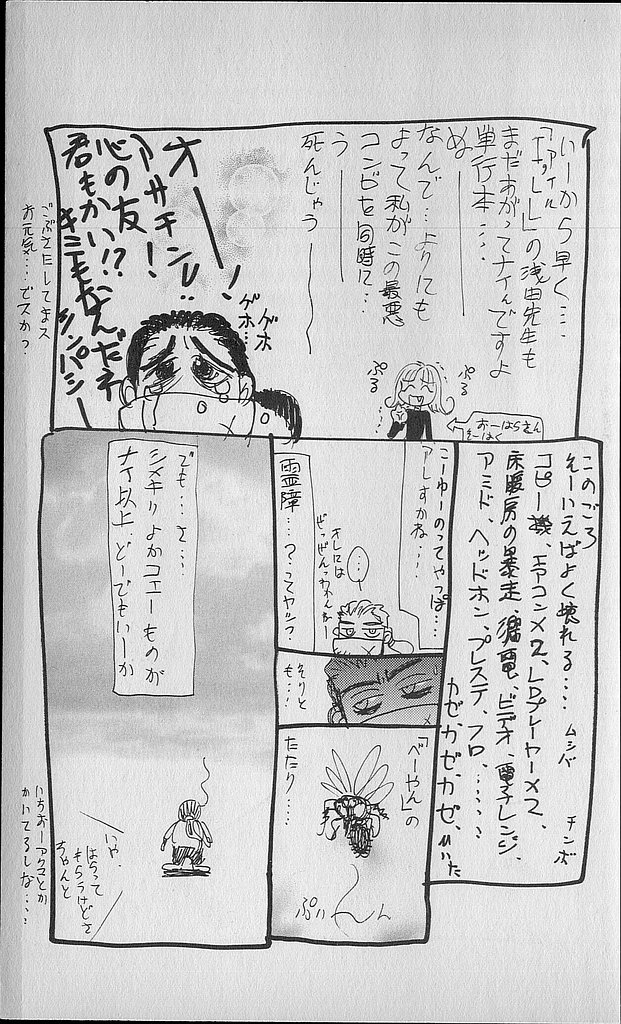 いーから早く…
「ナイル」の浅田先生も
まだあがってナイんですよ
単行本…
ぬ――
なんで…よりにも
よって私がこの最悪
コンビを同時に…
う――
死んじゃう――
ぷる
ぷる
おーはらさん
そーはく
オ――!
アサチン!!
心の友!
君もかい!?
キミもかんだネ
シンパシー
ゲホ
ゲホ…
ごぶさたしてます
お元気…ですか?
このごろ
そーいえばよく壊れる…
コピー機、エアコン×2、LDプレーヤー×2、
床暖房の暴走、漏電、ビデオ、電子レンジ、
アミド、ヘッドホン、プレステ、フロ、……
ムシバ
チンボ
カゼ、カゼ、カゼ、ひいた
こーゆーのってやっぱ…
アレすかね…
霊障…?ってヤツ?
オレには
ぜっぜんっわかんねー
…
それと
も…!
「べーやん」の
たたり…
ぷい〜ん
でも…さ…
シメキリよかコエーものが
ナイ以上、どーでもいーか
いや、
はらって
もらうけどさ
ちゃんと
いちおーアクマとか
かいてるしな…